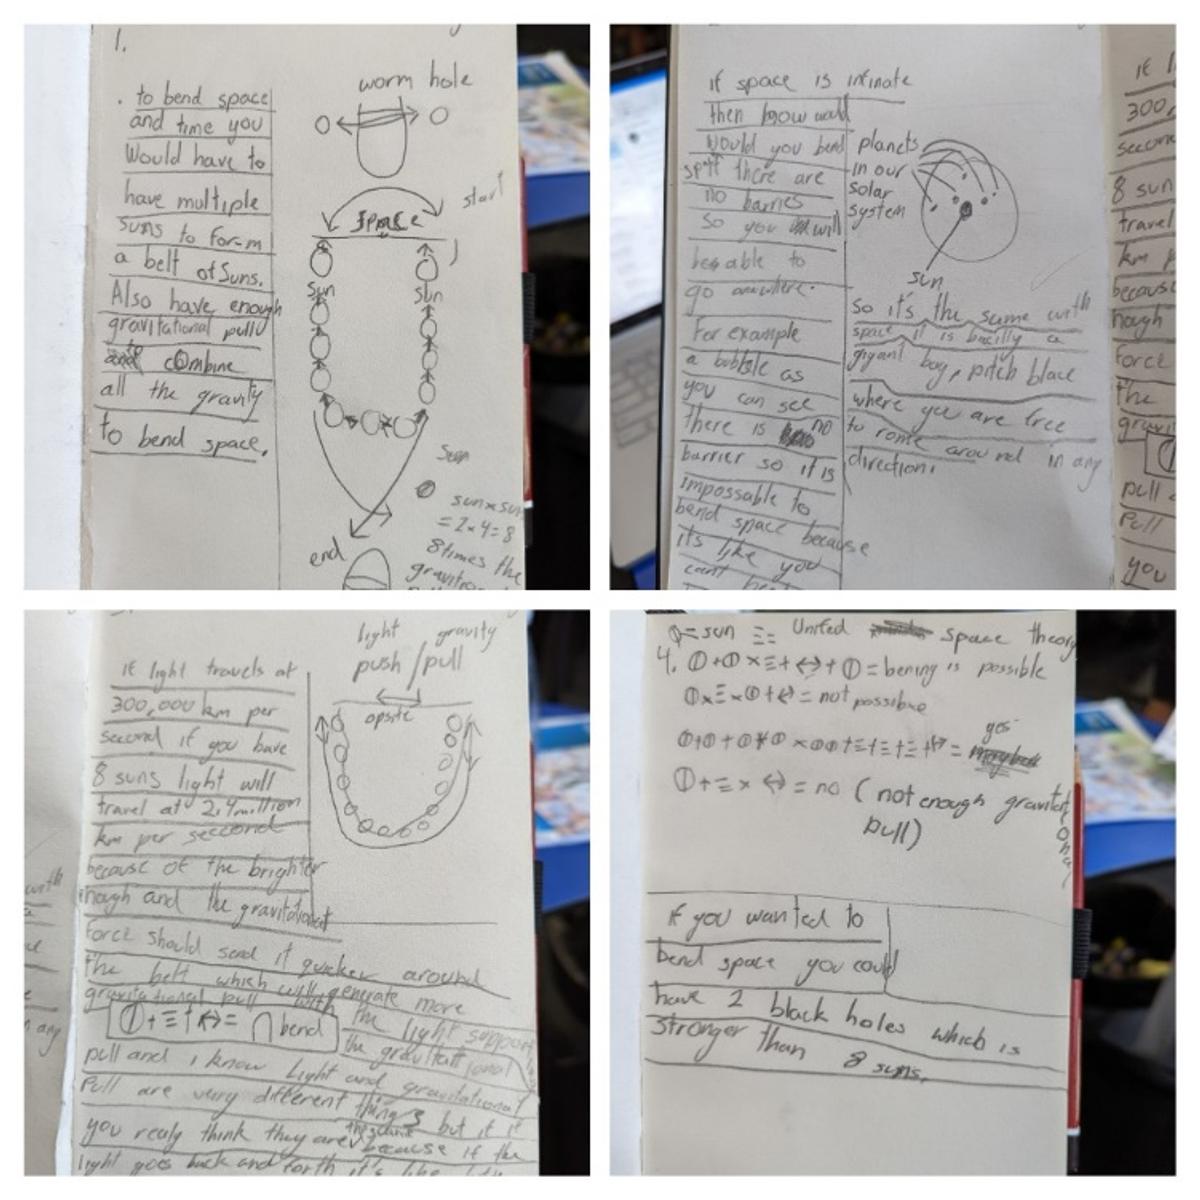 1.
. to bend space
and time you
Would have to
have multiple
suns to form
a belt of Suns.
Also have enough
gravitational pull
to combine
all the gravity
to bend space.
worm hole
space
start
sun
sun
Sun
sun x sun
= 2 x 4 = 8
8 times the
end
if space is infinate
then how would
Would you bend
there are
no barries
so you will
be able to
go anwhere.
For example
a bubble as
you can see
there is no
barrier so it is
impossable to
bend space because
its like you
planets
in our
solar
system
sun
So it's the same with
space it is bacilly a
gigant bag, pitch black
where you are free
to rome around in any
direction.
300,
8 sun
travel
km p
because
hough
Force
the
pull
Pull
you
with
any
if light travels at
300,000 km per
second if you have
8 suns light will
travel at 2,4 million
km per second
because of the brighter
hough and the gravitational
Force should send it quicker around
the belt which will generate more
gravitational pull with
the light support
the gravitational
bend
pull and i know Light and gravitational
Pull are very different things but if
you realy think they are because if the
light goes back and forth it's like
light gravity
push / pull
opsite
= sun United space theory
4. = bening is possible
= not possible
= yes
= no (not enough gravitational
pull)
if you wanted to
bend space you could
have 2 black holes which is
stronger than 8 suns.